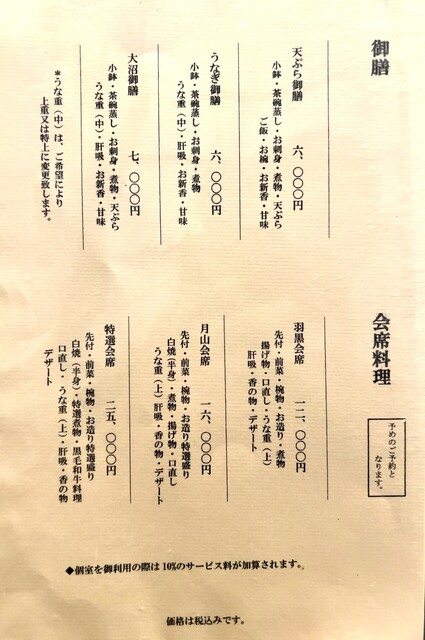 御膳
天ぷら御膳 六、〇〇〇円
小鉢・茶碗蒸し・お刺身・煮物・天ぷら
ご飯・お椀・お新香・甘味
うなぎ御膳 六、〇〇〇円
小鉢・茶碗蒸し・お刺身・煮物
うな重（中）・肝吸・お新香・甘味
大沼御膳 七、〇〇〇円
小鉢・茶碗蒸し・お刺身・煮物・天ぷら
うな重（中）・肝吸・お新香・甘味
＊うな重（中）は、ご希望により
上重又は特上に変更致します。
会席料理
予めのご予約と
なります。
羽黒会席 一二、〇〇〇円
先付・前菜・椀物・お造り・煮物
揚げ物・口直し・うな重（上）
肝吸・香の物・デザート
月山会席 一六、〇〇〇円
先付・前菜・椀物・お造り特選盛り
白焼（半身）・煮物・揚げ物・口直し
うな重（上）肝吸・香の物・デザート
特選会席 二五、〇〇〇円
先付・前菜・椀物・お造り特選盛り
白焼（半身）・特選煮物・黒毛和牛料理
口直し・うな重（上）・肝吸・香の物
デザート
◆個室を御利用の際は10%のサービス料が加算されます。
価格は税込みです。